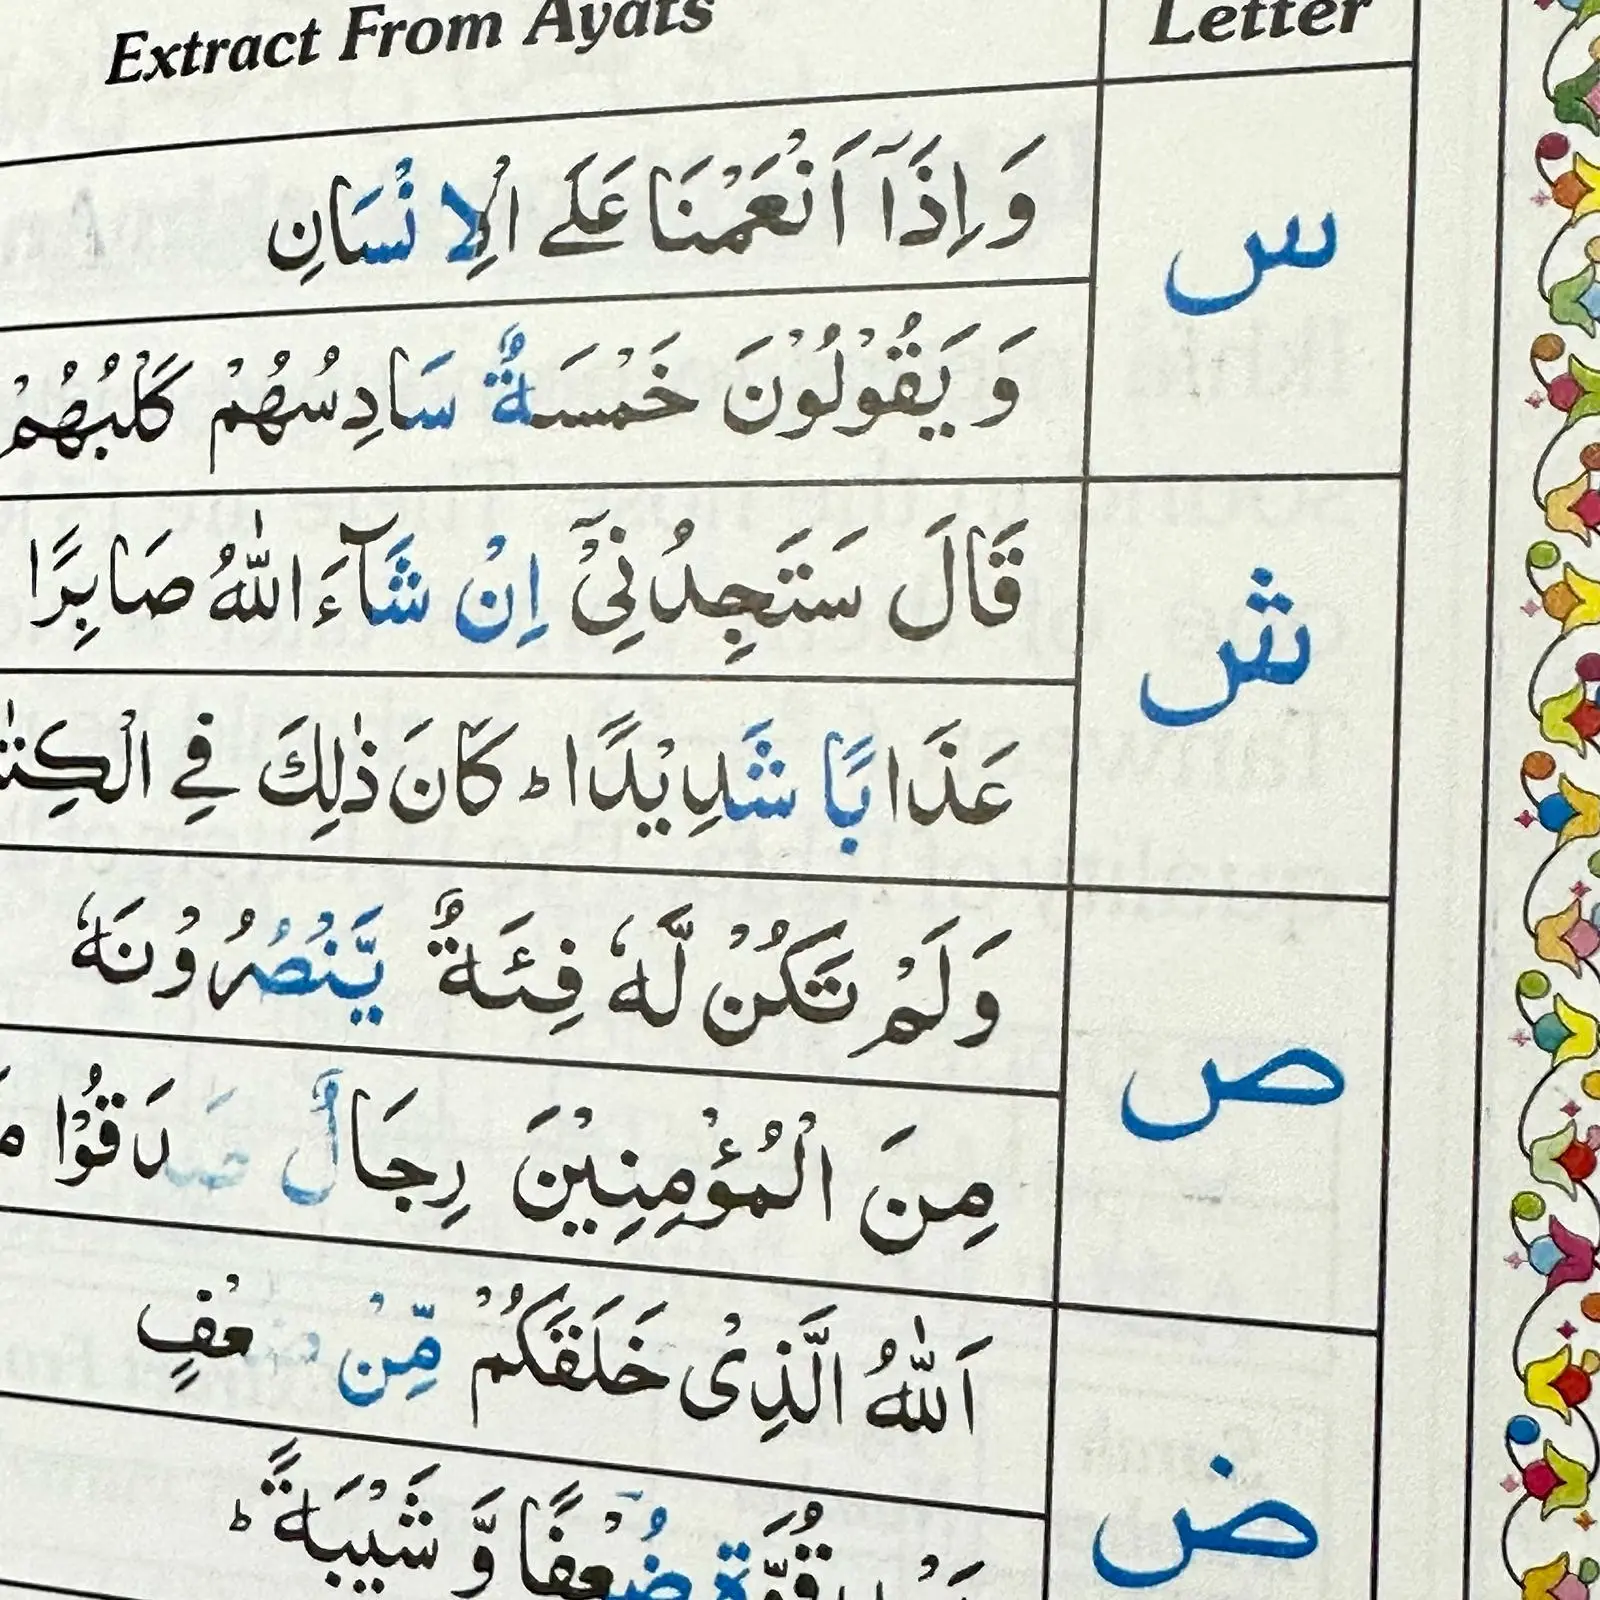 Extract From Ayats Letter
س
وَاِذَآ اَنْعَمْنَا عَلَى الْاِنْسَانِ
وَ يَقُوْلُوْنَ خَمْسَةٌ سَادِسُهُمْ كَلْبُهُمْ
ش
قَالَ سَتَجِدُنِيْٓ اِنْ شَآءَ اللّٰهُ صَابِرًا
عَذَابًا شَدِيْدًا ؕ كَانَ ذٰلِكَ فِي
ص
وَلَمْ تَكُنْ لَّهٗ فِئَةٌ يَّنْصُرُوْنَهٗ
مِنَ الْمُؤْمِنِيْنَ رِجَالٌ صَدَقُوْا
ض
اَللّٰهُ الَّذِيْ خَلَقَكُمْ مِّنْ
قُوَّةٍ ضُعْفًا وَّ شَيْبَةً ؕ